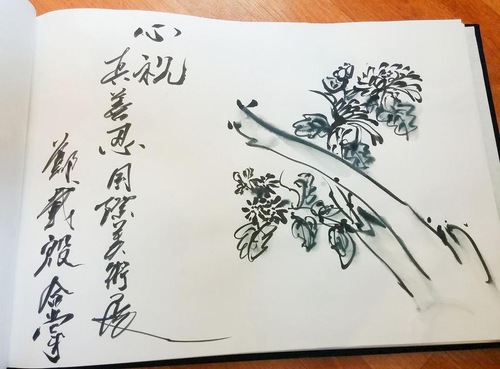 心祝
真善忍国際美術展
鄭載 合掌